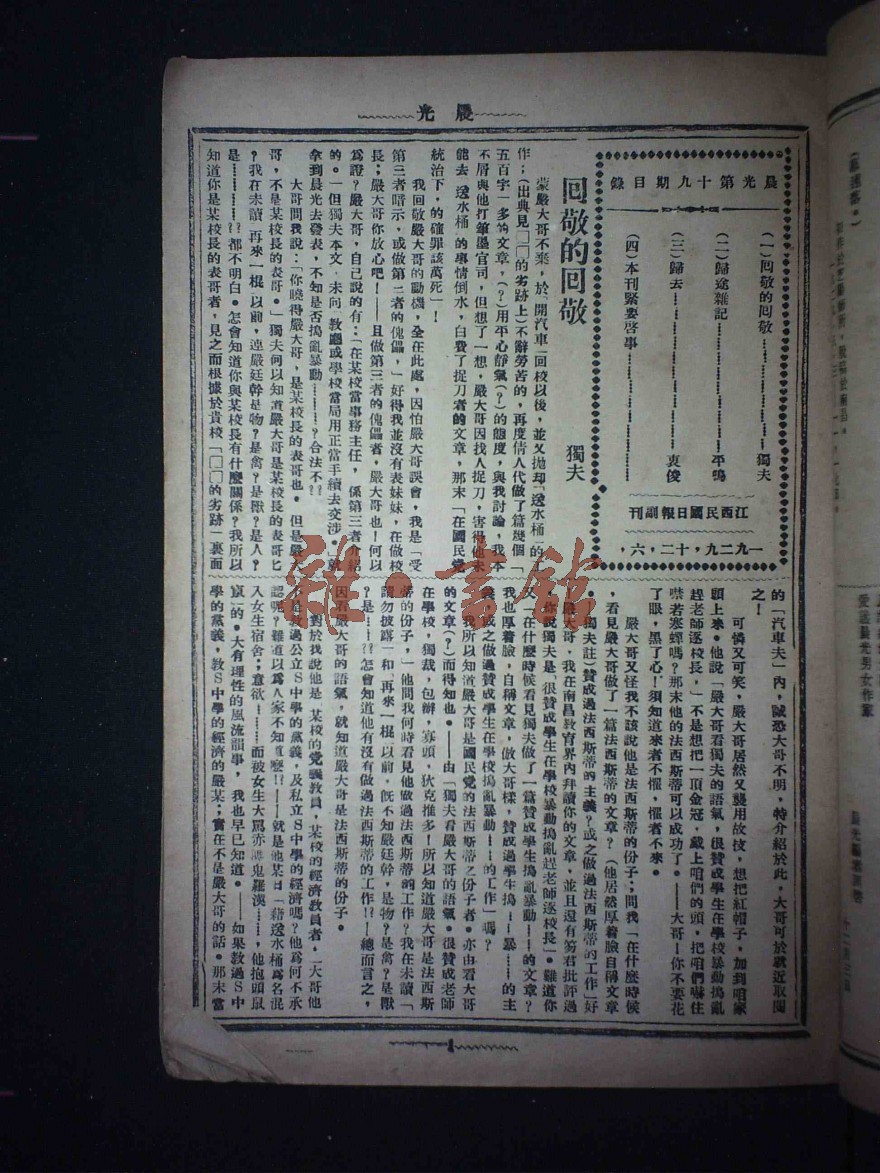 晨光
晨光第十九期目錄
(一)回敬的回敬……獨夫
(二)歸途雜記……平鳴
(三)歸去……衷俊
(四)本刊緊要啓事……
江西民國日報副刊
一九二九,十二,六,
回敬的回敬
獨夫
蒙嚴大哥不棄,於「開汽車」回校以後,並又拋却「送水桶」的工
作;(出典見「□□的劣跡上」)不辭勞苦的,再度倩人代做了篇幾個「
五百字」多的文章,(?)用平心靜氣(?)的態度,與我討論,我本
不屑與他打筆墨官司,但想了一想,嚴大哥因找人捉刀,害得他未
能去「送水桶」的事情倒水,白費了捉刀者的文章,那末「在國民黨
統治下,的確罪該萬死」!
我回敬嚴大哥的動機,全在此處,因怕嚴大哥誤會,我是「受
第三者暗示,或做第三者的傀儡,」好得我並沒有表妹妹,在做校
長;嚴大哥你放心吧!——且做第三者的傀儡者,嚴大哥也!何以
爲證?嚴大哥,自己說的有:「在某校當事務主任,係第三者介紹
的。一但獨夫本文,未向「教廳或學校當局用正當手續去交涉。」就
拿到晨光去發表,不知是否搗亂暴動………?合法不??
大哥問我說:「你曉得嚴大哥,是某校長的表哥也。但是嚴大
哥,不是某校長的表哥。」獨夫何以知道嚴大哥是某校長的表哥匕
?我在未讀「再來一棍」以前,連嚴廷幹是物?是禽?是獸?是人?
是…………??都不明白。怎會知道你與某校長有什麼關係?我所以
知道你是某校長的表哥者,見之而根據於貴校「□□的劣跡」裏面
的「汽車夫」內,誠恐大哥不明,特介紹於此,大哥可於就近取閱
之!
可憐又可笑,嚴大哥居然又襲用故技,想把紅帽子,加到咱家
頭上來。他說「嚴大哥看獨夫的語氣,很贊成學生在學校暴動搗亂
趕老師逐校長,」不是想把一頂金冠,戴上咱們的頭,把咱們嚇住
噤若寒蟬嗎?那末他的法西斯蒂可以成功了。——大哥!你不要花
了眼,黑了心!須知道來者不懼,懼者不來。
嚴大哥又怪我不該說他是法西斯蒂的份子;問我「在什麼時候
,看見嚴大哥做了一篇法西斯蒂的文章?(他居然厚着臉自稱文章
。獨夫註)贊成過法西斯蒂的主義?或之做過法西斯蒂的工作」好
嚴大哥,我在南昌教育界內拜讀你的文章,並且還有笏君批評過
,你說獨夫是「很贊成學生在學校暴動搗亂趕老師逐校長」。難道你
又「在什麼時候看見獨夫做了一篇贊成學生搗亂暴動……的文章?
我也厚着臉,自稱文章,倣大哥樣,贊成過學生搗……暴……的主
義?或之做過贊成學生在學校搗亂暴動……的工作」嗎?
我所以知道嚴大哥是國民黨的法西斯蒂之份子者,亦由看大哥
的文章(?)而得知也。——由「獨夫看嚴大哥的語氣,很贊成老師
在學校,獨裁,包辦,寡頭,狄克推多!所以知道嚴大哥是法西斯
蒂的份子,一他問我何時看見他做過法西斯蒂的工作?我在未讀「
請勿披露」和「再來一棍」以前,旣不知嚴廷幹,是物?是禽?是獸
?是……??怎會知道他有沒有做過法西斯蒂的工作!?——總而言之,
因看嚴大哥的語氣,就知道嚴大哥是法西斯蒂的份子。
對於我說他是「某校的黨義教員,某校的經濟教員者,一大哥他
不是教過公立S中學的黨義,及私立S中學的經濟嗎?他爲何不承
認呢?難道以爲人家不知道麼!?——就是他某日「藉送水桶爲名混
入女生宿舍;意欲……而被女生大罵赤膊鬼羅漢……,他抱頭鼠
竄」的。大有理性的風流韻事,我也早已知道。——如果教過S中
學的黨義,教S中學的經濟的嚴某;實在不是嚴大哥的話。那末當
1
雜·書館